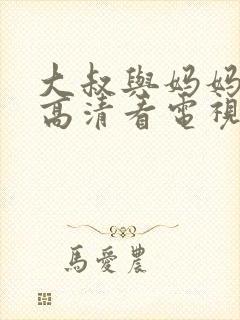 大叔與妈妈
高清看電視
馬愛農